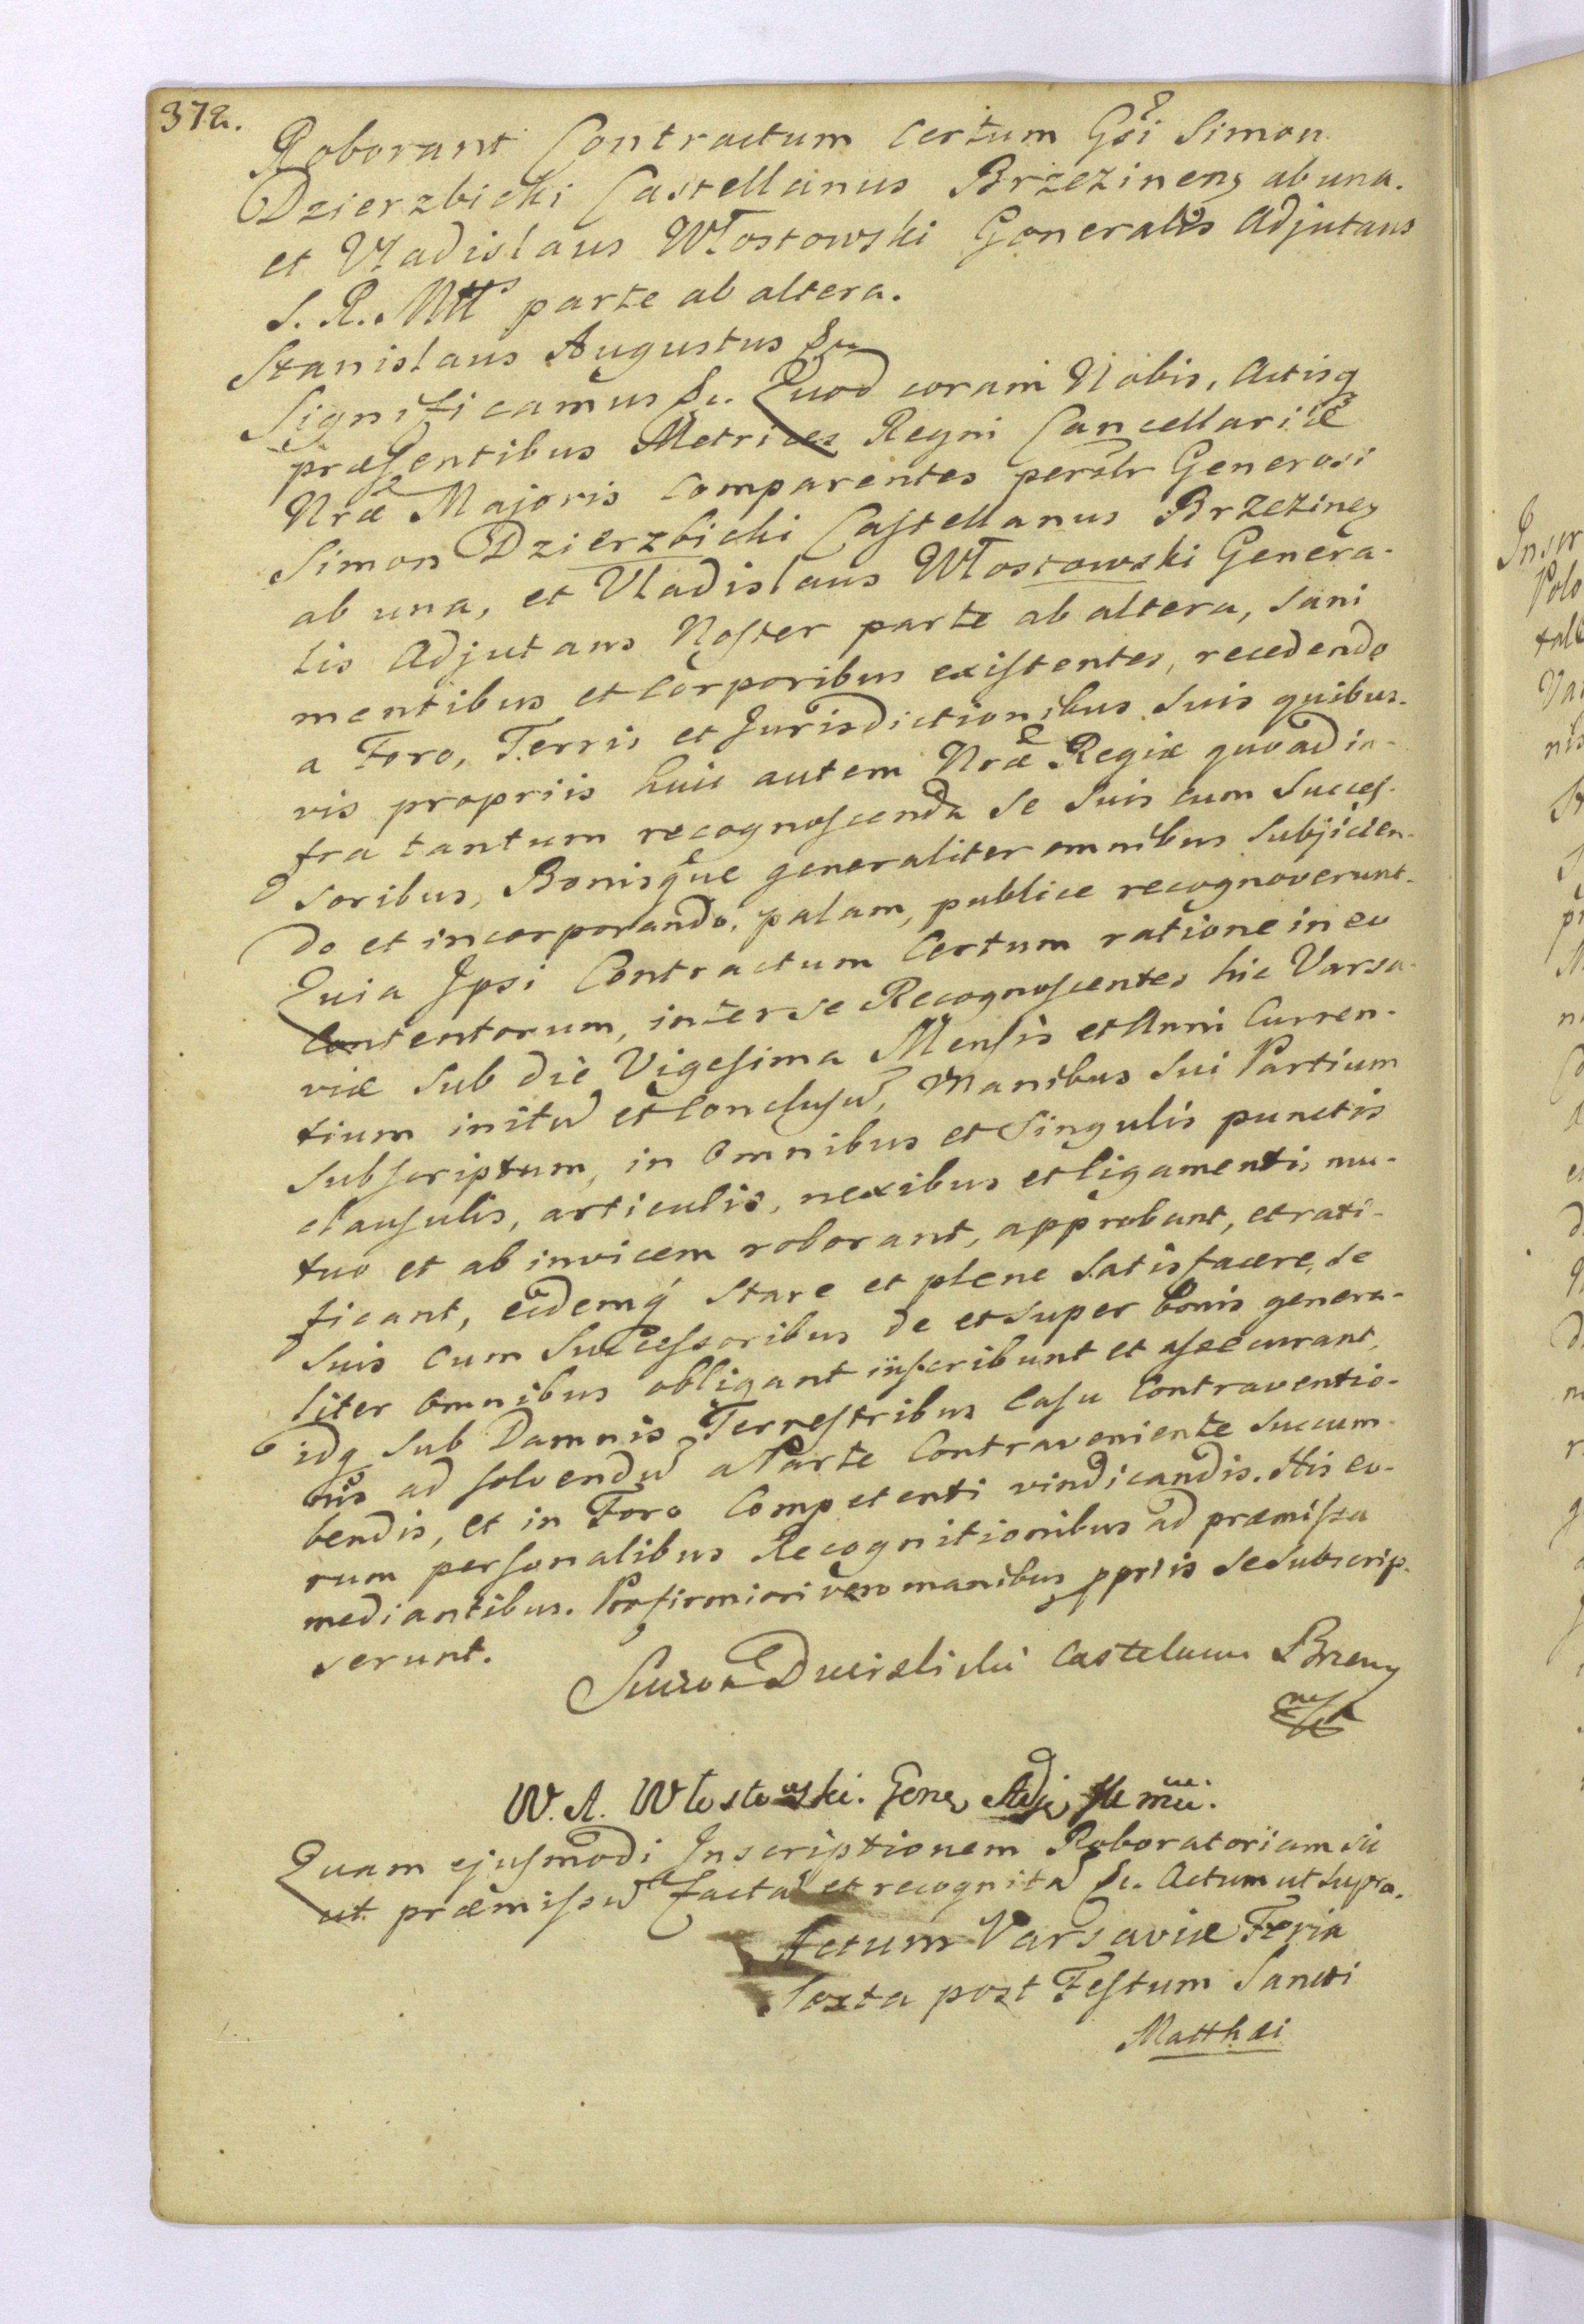 372.
Roborant Contractum certum Gsi Simon
Dzierzbicki Castellanus Brzezinens ab una.
et Vladislaus Włostowski Generalis Adjutans
S. R. Mtts parte ab altera.
Stanislaus Augustus &c
Significamus &c. Quod coram Nobis, Actisq
præsentibus Metrices Regni Cancellariæ
Nræ Majoris Comparentes persltr Generosi
Simon Dzierzbicki Castellanus Brzezinens
ab una, et Vladislaus Włostowski Genera-
lis Adjutans Noster parte ab altera, Sani
mentibus et Corporibus existentes, recedendo
a Foro, Terris et Jurisdictionibus Suis quibus-
vis propriis huic autem Nræ Regiæ quoad in-
fra tantum recognoscenda Se Suis cum Succes-
soribus, Bonisque generaliter omnibus Subjicien-
do et incorporando, palam, publice recognoverunt.
Quia Ipsi Contractum Certum ratione in eo
Contentorum, inter se Recognoscentes hic Varsa-
viæ Sub die Vigesima Mensis et Anni Curren-
tium initū et Conclusū, Manibus Sui Partium
Subscriptum, in Omnibus et Singulis punctis
clausulis, articulis, nexibus et ligamentis mu-
tuo et ab invicem roborant, approbant, et rati-
ficant, eidemq́ Stare et plene Satisfacere, se
Suis Cum Successoribus de et Super bonis genera-
liter Omnibus obligant inscribunt et assecurant,
idq Sub Damnis Terrestribus Casu Contraventio-
nis ad solvendū a Parte Contraveniente Succum-
bendis, et in Foro Competenti vindicandis. His eo-
rum personalibus Recognitionibus ad præmissa
mediantibus. Pro firmiori vero manibus ppriis Se Subscrip-
serunt.
Simon Dzierzbicki Castelanus Brzezy
W. A. Włostowski. Gene Adj
Quam ejusmodi Inscriptionem Roboratoriam sic
ut præmissū factā et recognitā &c. Actum ut Supra.
Actum Varsaviæ Feria
Sexta post Festum Sancti
Matthæi